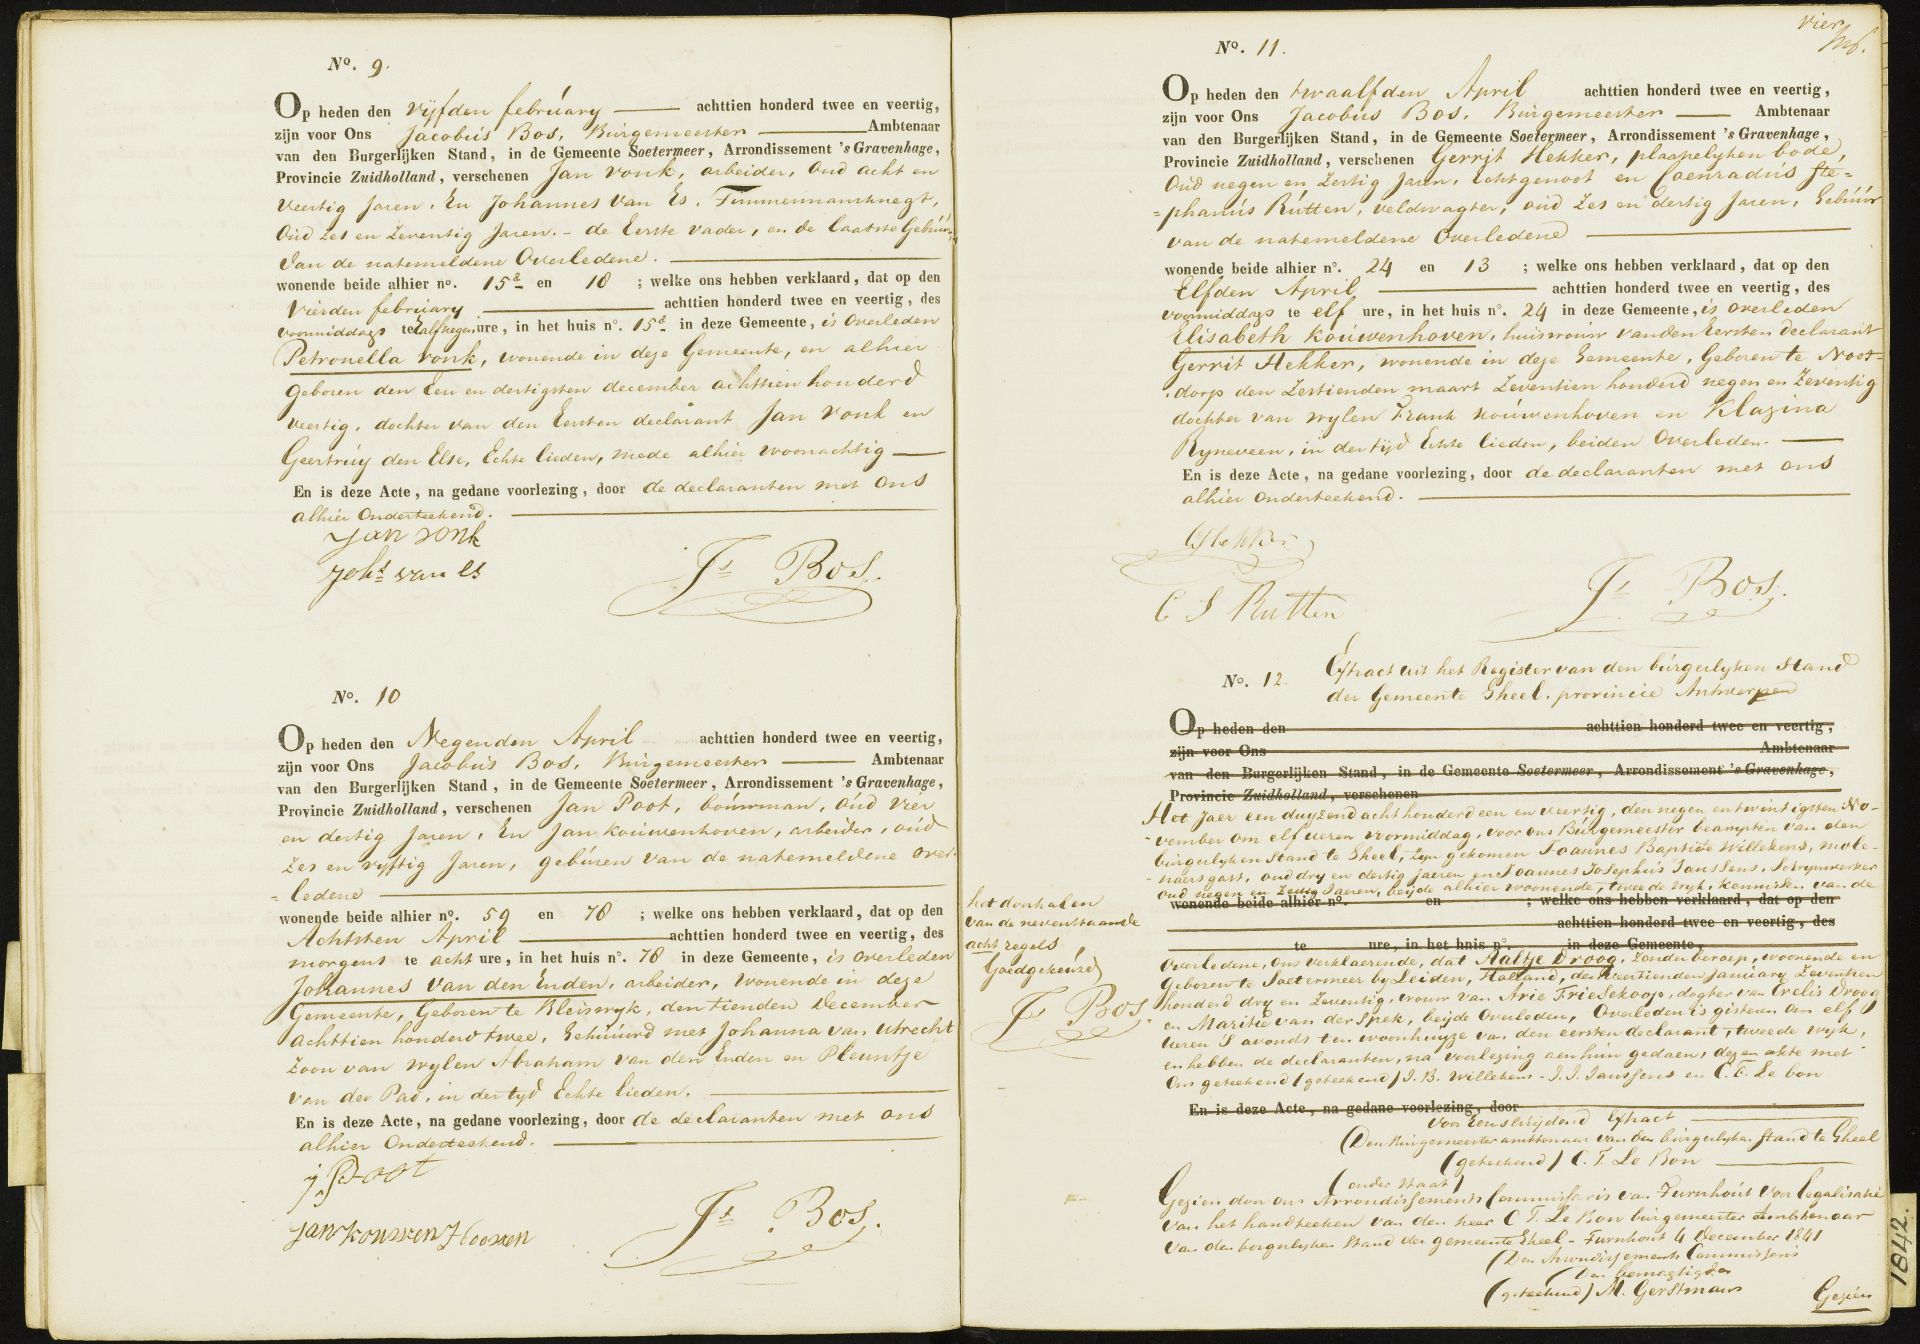 Nº. 9.
Op heden den vijfden february achttien honderd twee en veertig,
zijn voor Ons Jacobus Bos, Burgemeester Ambtenaar
van den Burgerlijken Stand, in de Gemeente Soetermeer, Arrondissement 's Gravenhage,
Provincie Zuidholland, verschenen Jan Vonk, arbeider, Oud acht en
veertig Jaren, En Johannes van Es, Timmermansknegt,
Oud zes en zeventig Jaren. - de Eerste vader, en de laatste Gebuur
van de natemeldene Overledene.
wonende beide alhier nº. 15ª en 18 ; welke ons hebben verklaard, dat op den
vierden february achttien honderd twee en veertig, des
voormiddags te half negen ure, in het huis nº. 15ª in deze Gemeente, is Overleden
Petronella Vonk, wonende in deze Gemeente, en alhier
geboren den Een en dertigsten december achttien honderd
veertig, dochter van den Eersten declarant Jan Vonk en
Geertruy den Else, Echte lieden, mede alhier woonachtig
En is deze Acte, na gedane voorlezing, door de declaranten met ons
alhier Onderteekend.
Jan vonk
Johs van Es
Js Bos.
Nº. 10
Op heden den Negenden April achttien honderd twee en veertig,
zijn voor Ons Jacobus Bos, Burgemeester Ambtenaar
van den Burgerlijken Stand, in de Gemeente Soetermeer, Arrondissement 's Gravenhage,
Provincie Zuidholland, verschenen Jan Poot, bouwman, oud vier
en dertig Jaren, En Jan Kouwenhoven, arbeider, oud
zes en vyftig Jaren, geburen van de natemeldene over-
=ledene
wonende beide alhier nº. 59 en 78 ; welke ons hebben verklaard, dat op den
Achtsten April achttien honderd twee en veertig, des
morgens te acht ure, in het huis nº. 78 in deze Gemeente, is overleden
Johannes van den Enden, arbeider, wonende in deze
Gemeente, Geboren te Bleiswyk, den tienden December
achttien honderd twee, Gehuurd met Johanna van Utrecht
Zoon van wylen Abraham van den Enden en Pleuntje
van der Pad, in der tyd Echte lieden.
En is deze Acte, na gedane voorlezing, door de declaranten met ons
alhier Onderteekend.
J Poot
Jan Kouwen Hooven
Js Bos.
vier
Nº. 11.
Op heden den twaalfden April achttien honderd twee en veertig,
zijn voor Ons Jacobus Bos, Burgemeester Ambtenaar
van den Burgerlijken Stand, in de Gemeente Soetermeer, Arrondissement 's Gravenhage,
Provincie Zuidholland, verschenen Gerrit Hekker, plaatselyken bode,
Oud negen en Zestig Jaren, Echtgenoot en Coenradus Ste=
=phanus Rutten, veldwagter, oud Zes en dertig Jaren, Gebuur
van de natemeldene Overledene
wonende beide alhier nº. 24 en 13 ; welke ons hebben verklaard, dat op den
Elfden April achttien honderd twee en veertig, des
voormiddags te elf ure, in het huis nº. 24 in deze Gemeente, is overleden
Elisabeth Kouwenhoven, huisvrouw van den Eersten declarant
Gerrit Hekker, wonende in deze Gemeente, Geboren te Noot-
dorp den Zestienden maart Zeventien honderd negen en Zeventig
dochter van wylen Frank Kouwenhoven en Klazina
Ryneveen, in der tijd Echte lieden, beiden Overleden.
En is deze Acte, na gedane voorlezing, door de declaranten met ons
alhier Onderteekend.
G Hekker
C S Rutten
Js Bos.
Nº. 12. Extract uit het Register van den burgerlyken Stand
der Gemeente Gheel, provincie Antwerpen
Op heden den achttien honderd twee en veertig,
zijn voor Ons Ambtenaar
van den Burgerlijken Stand, in de Gemeente Soetermeer, Arrondissement 's Gravenhage,
Provincie Zuidholland, verschenen
Het Jaer een duyzend acht honderd een en veertig, den negen en twintigsten No-
vember om elf ueren voormiddag, voor ons Burgemeester beampten van den
burgerlyken stand te Gheel, zyn gekomen Joannes Baptiste Willekens, mole-
naers gast, oud dry en dertig jaeren en Joannes Josephus Janssens, Schrynwerker
oud negen en Zestig Jaeren, beyde alhier woonende, tweede wyk, kennissen van de
wonende beide alhier nº. en ; welke ons hebben verklaard, dat op den
achttien honderd twee en veertig, des
te ure, in het huis nº. in deze Gemeente,
Overledene, Ons verklaerende, dat Aaltje Droog, Zonder beroep, woonende en
Geboren te Soetermeer by Leiden, Holland, den veertienden January Zeventien
honderd dry en Zeventig, vrouw van Arie Friesekoop, dogter van Crelis Droog
en Maritie van der Spek, beijde Overleden, Overleden is gisteren om elf
ueren S'avonds ten woonhuyze van den eersten declarant, tweede wyk,
en hebben de declaranten, na voorlezing aen hun gedaen, dezen akte met
Ons geteekend (geteekend) J. B. Willekens - J. J. Janssens en C. T. Le bon
En is deze Acte, na gedane voorlezing, door
Voor Eensluydend Extract
(Den Burgemeester ambtenaar van den burgerlyken stand te Gheel
(geteekend) C. T. Le Bon
(onder staat)
Gezien door ons Arrondissements Commissaris van Turnhout voor legalisatie
van het handteeken van den heer C T. Le Bon burgemeester Ambtenaar
van den borgerlyken Stand der gemeente Gheel - Turnhout 4 December 1841
(Den Arrondissements Commissaris
Den bemagtigden
(geteekend) M. Gerstmans
Gezien
het doorhalen
van de nevenstaande
acht regels
Goedgekeurd
Js Bos.
1842.